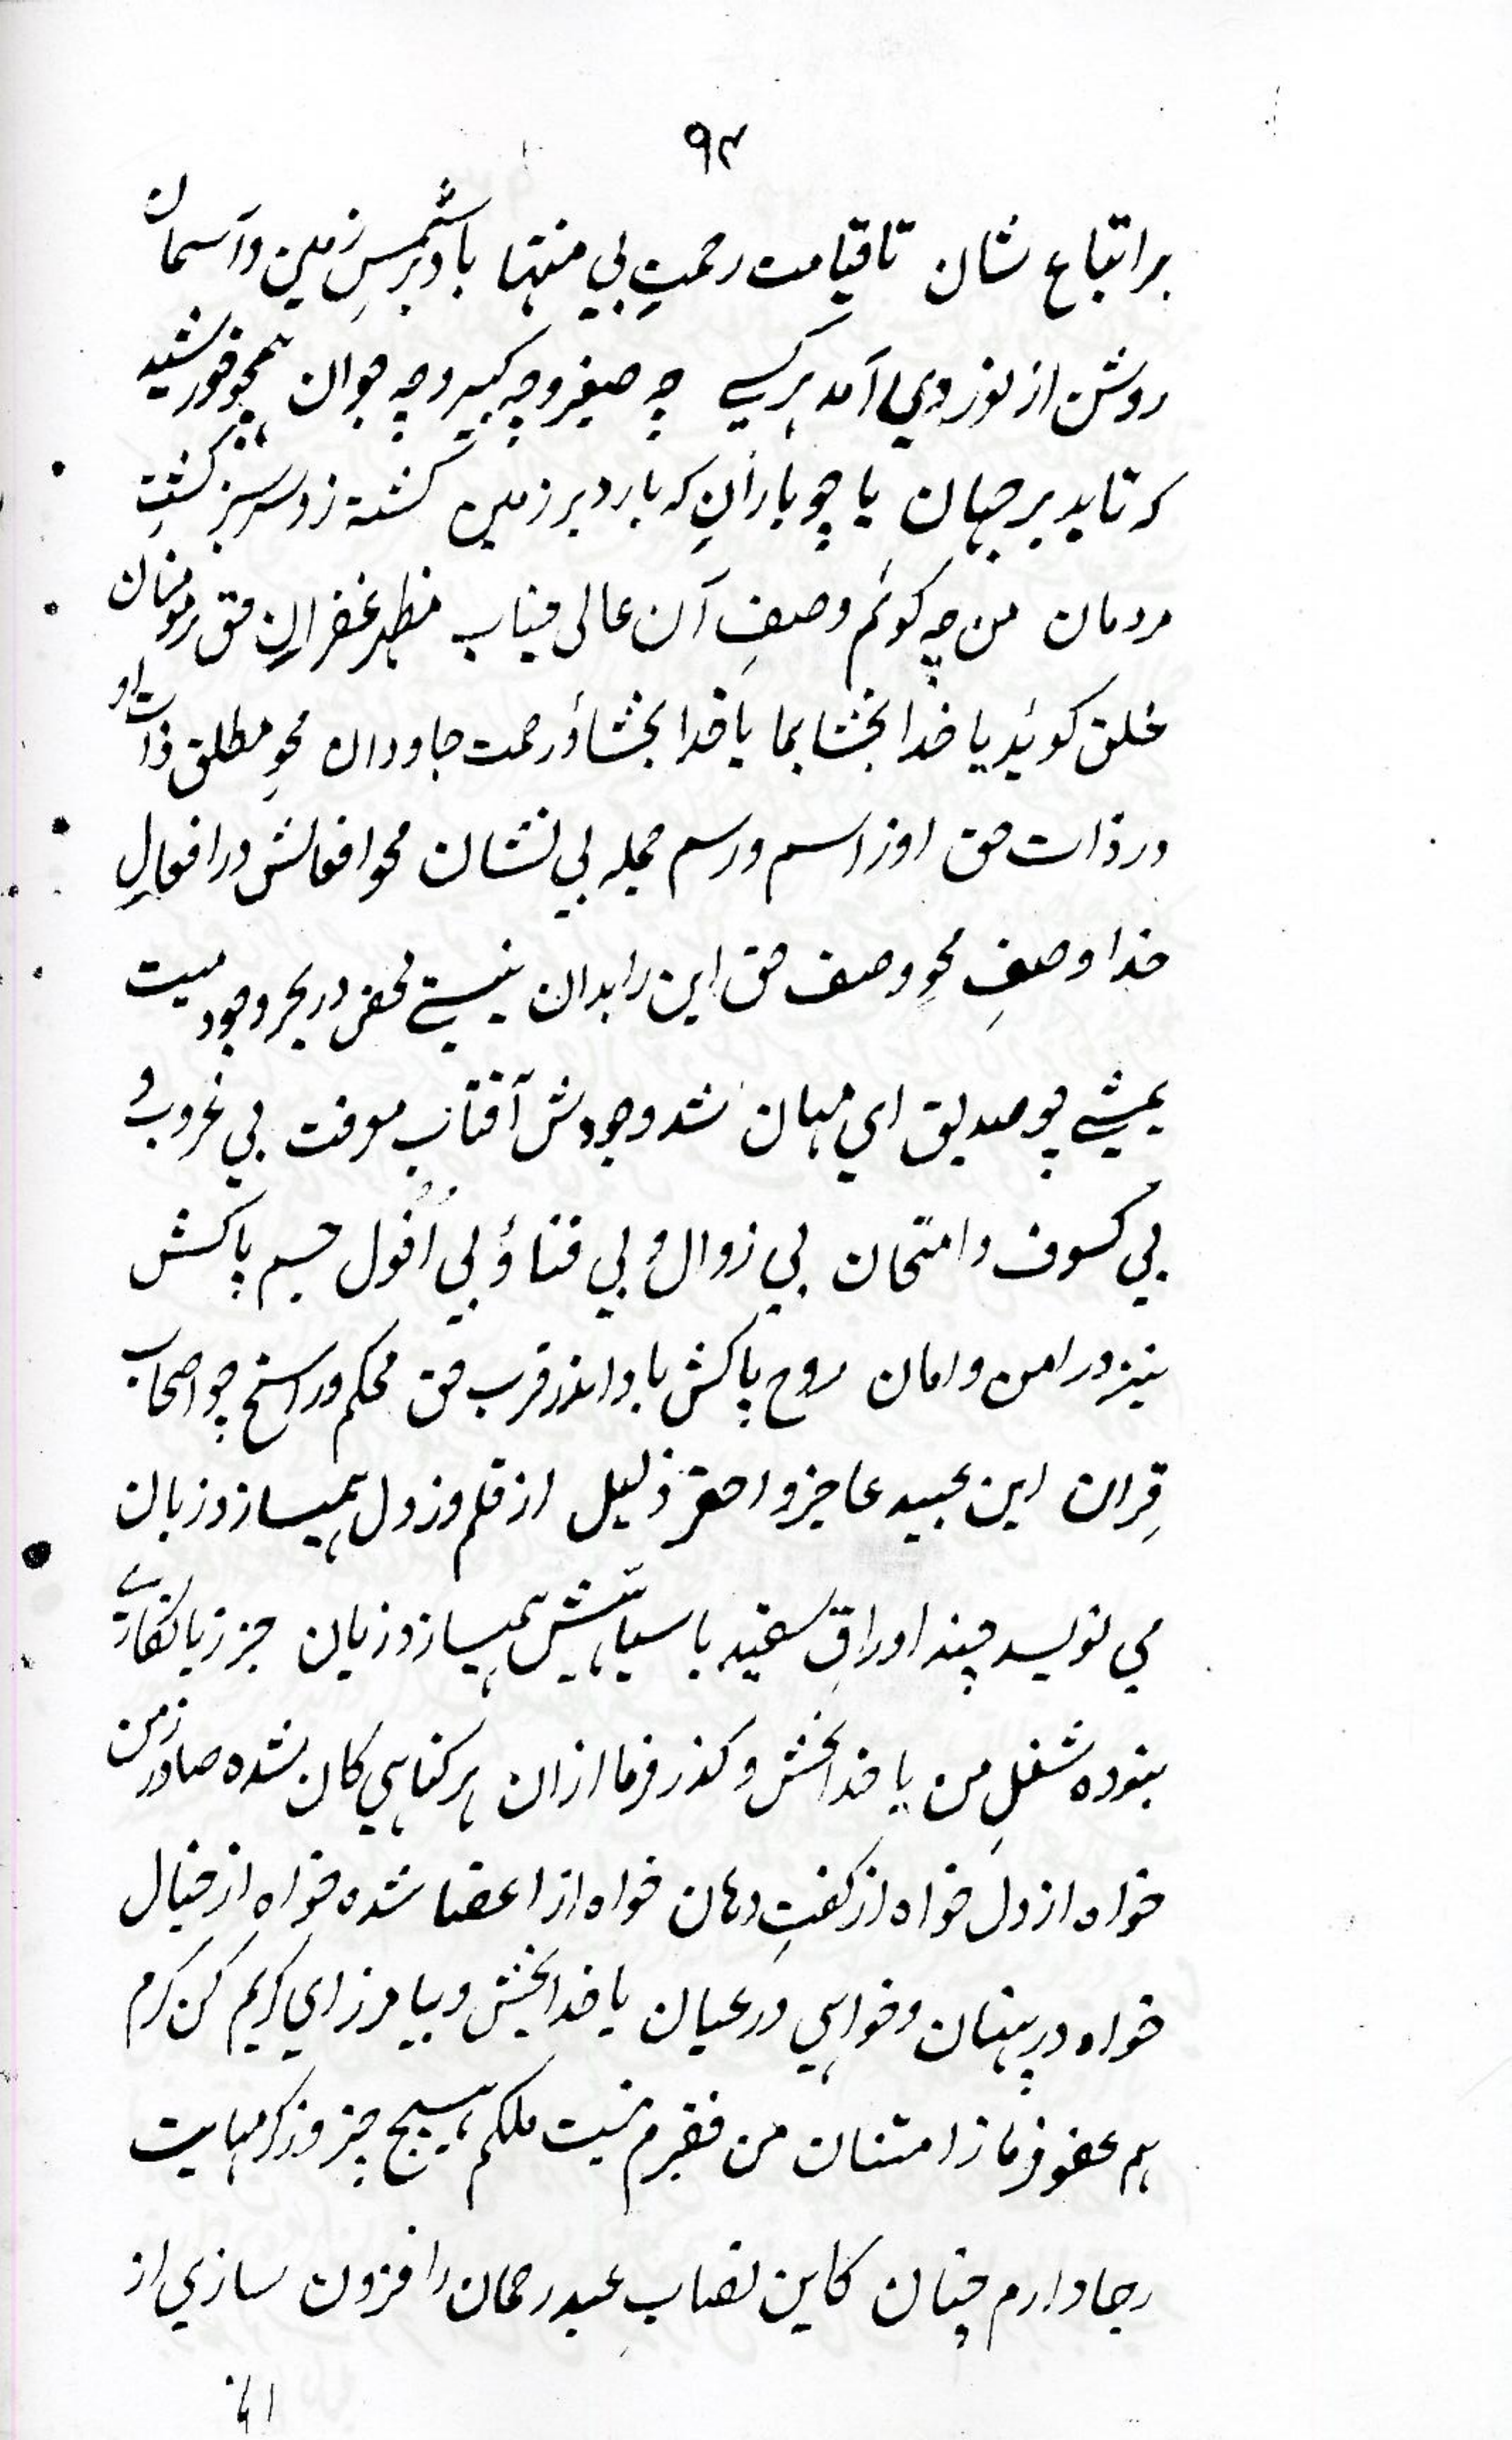 ۹۴
بر اتباع شان تا قیامت رحمتِ بی منتها باد بر شمسِ زمین و آسمان
روشن از نور وی آمد هر کسے چه صغیر و چه کبیر و چه جوان همچو خورشید
که تابد بر جهان یا چو بارانِ که بارد بر زمین گشته زو سرسبز کشتِ
مردمان من چه کوئم وصفِ آن عالی جناب مظهر غفرانِ حق بر مومنان
خلق کوئید یا خدا بخشا بما یا خدا بخشا ؤ رحمت جاودان محوِ مطلق ذات او
در ذات حق او ز اسم و رسم جمله بی نشان محو افعالش در افعالِ
خدا وصفِ محوِ وصف حق این را بدان نیستے محض در بحر وجود میت
یمشے چو صدیق ای مهان شد وجودش آفتابِ معرفت بی غروب و
بی کسوف و امتحان بی زوال و بی فنا ؤ بی اُفول جسم پاکش
نیز در امن و امان روح پاکش باد اندر قرب حق محکم و راسخ چو اصحاب
قِران این عبید عاجز و احقر ذلیل از قلم وز دل همیسازد زبان
می نویسد چند اوراقِ سفید با سیاهیش همیسازد زیان جز زیانکاری
نبوده شغلِ من یا خدا بخش و کذر فرما ازان هر کناهی کان شده صادر زمن
خواه از دل خواه از کفتِ دهان خواه از اعضا شده خواه از خیال
خواه در پنهان و خواهی در عیان یا خدا بخش و بیامرز ای کریم کن کرم
هم عفو فرما ز امتنان من فقیرم نیست ملکم هیچ چیز وز کرمهایت
رجا دارم چنان کاین نصابِ عبد رحمان را فزون سازی از